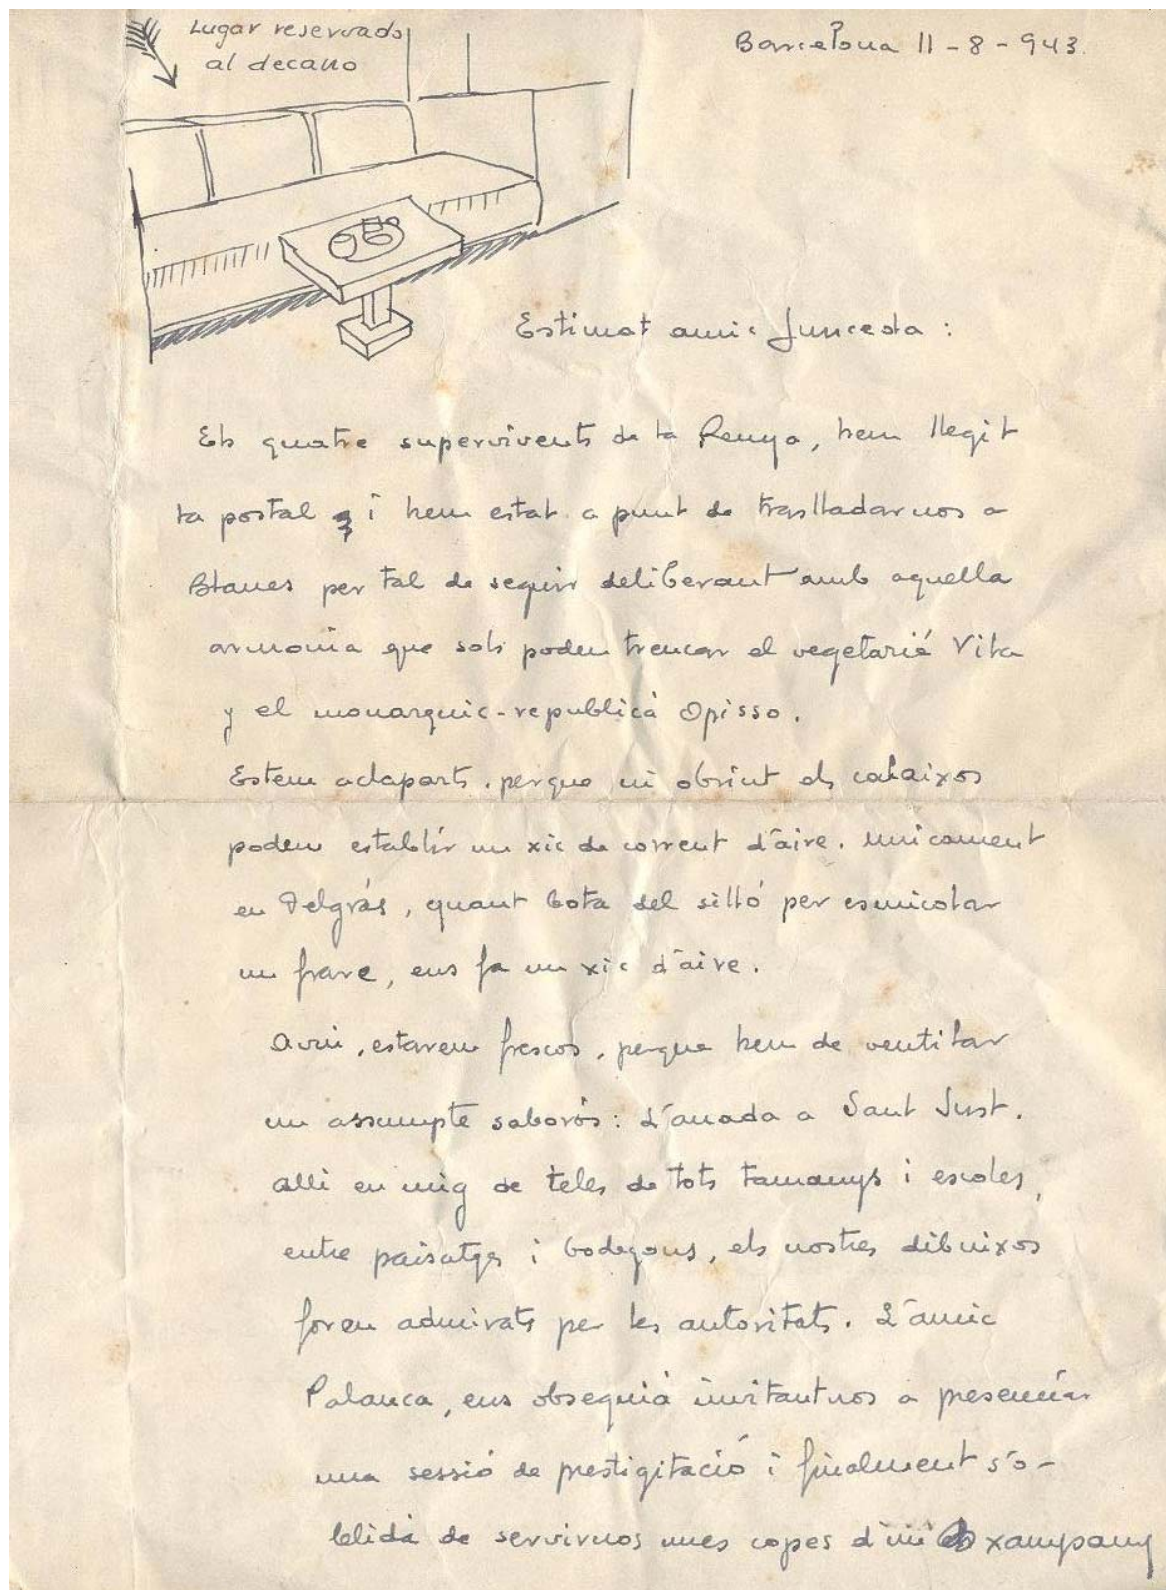 Lugar reservado
al decano
Barcelona 11-8-943.
Estimat amic Junceda :
Els quatre supervivents de la Penya, hem llegit
ta postal i hem estat a punt de traslladarnos a
Blanes per tal de seguir deliberant amb aquella
armonia que sols poden trencar el vegetarié Vila
y el monarquic-republicà Opisso.
Estem aclaparts, perque ni obrint els calaixos
podem establir un xic de corrent d'aire. Unicament
en Delgrás, quant bota del silló per esmicolar
un frare, ens fa un xic d'aire.
Avui, estarem frescos, perque hem de ventilar
un assumpte saborós: L'anada a Sant Just.
Alli en mig de teles de tots tamanys i escoles,
entre paisatges i bodegons, els nostres dibuixos
foren admirats per les autoritats. L'amic
Palanca, ens obsequià invitantnos a presenciar
una sessió de prestigitació i finalment s'o-
blidà de servirnos unes copes d'un xampany